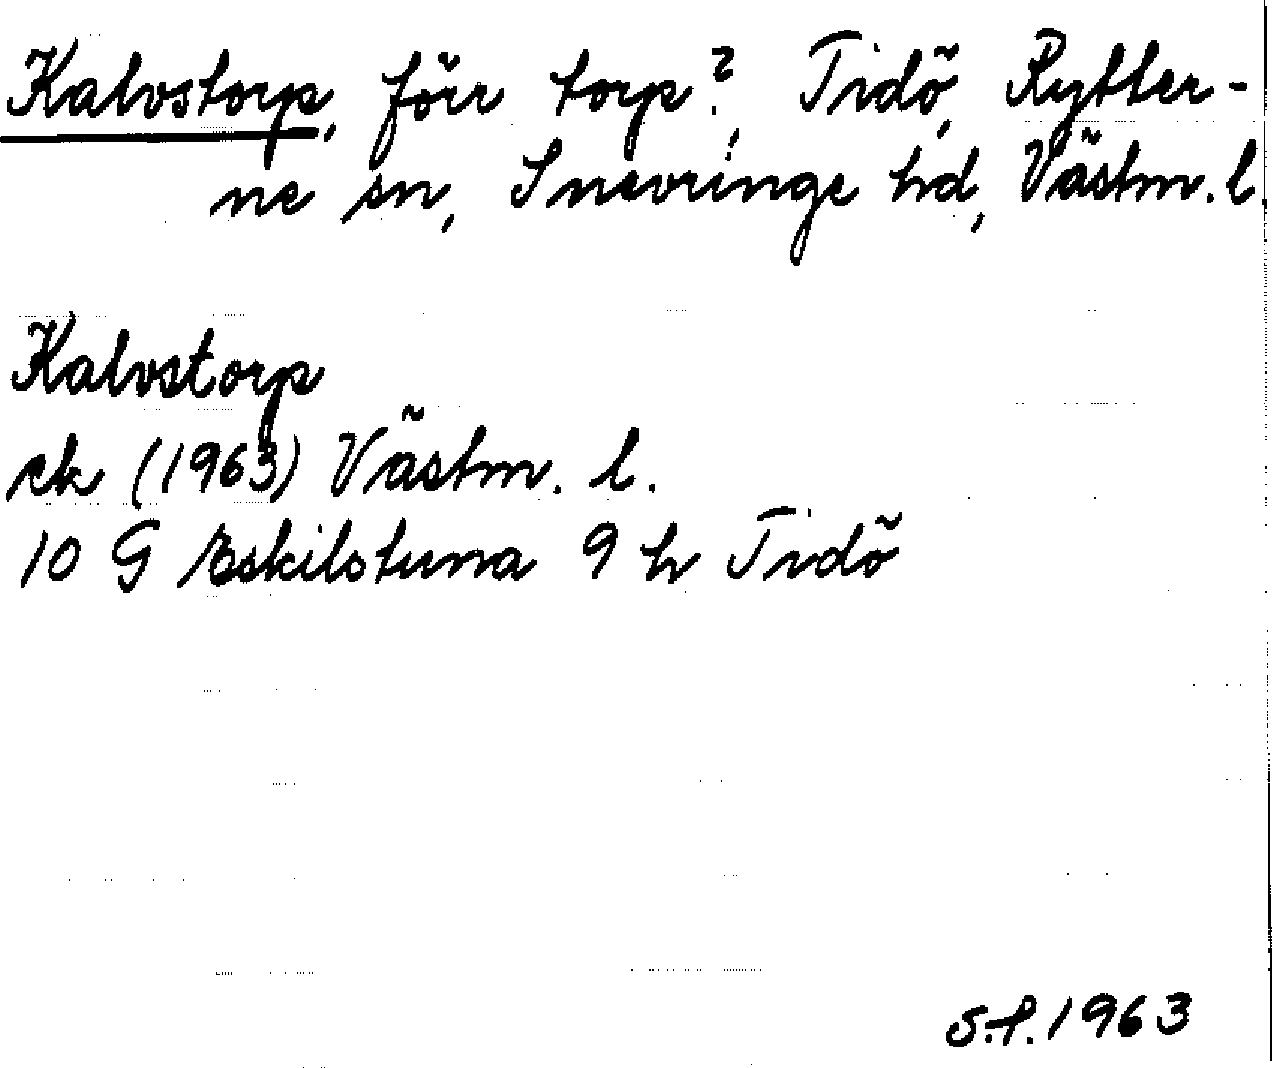 Kalvstorp, förr torp?, Tidö, Rytter-
ne sn, Snevringe hd, Västm. l.
Kalvstorp
ek (1963) Västm. l.
10 G Eskilstuna 9 h Tidö
1963